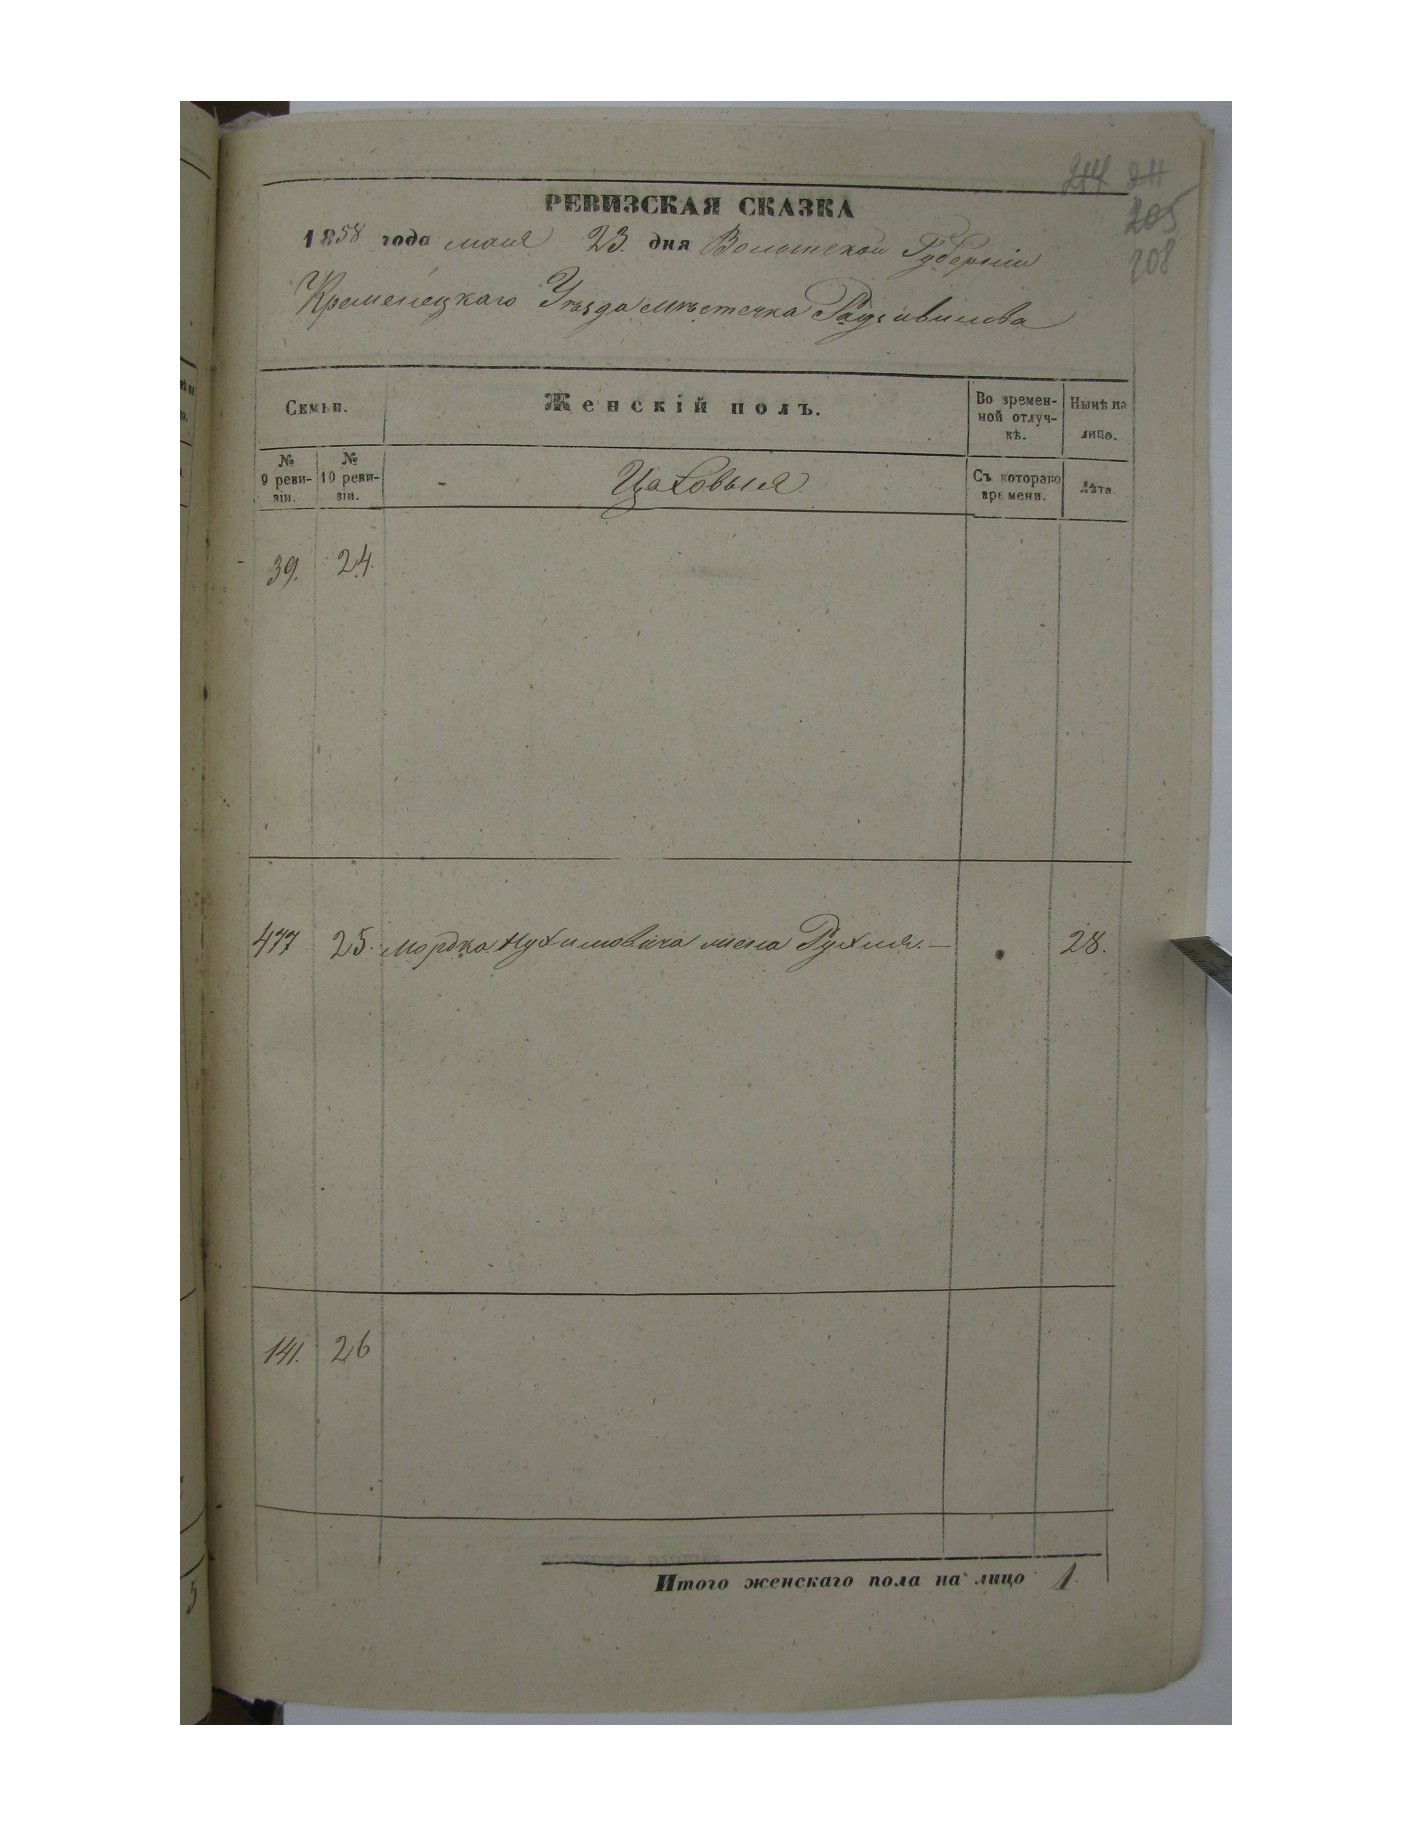 244 211
РЕВИЗСКАЯ СКАЗКА
205
1858 года мая 23. дня Волынской Губернiи
208
Кременецкаго Уѣзда мѣстечка Радзивилова
Семьи.
Женскiй полъ.
Во времен-
ной отлуч-
кѣ.
Нынѣ на
лицо.
№
9 реви-
зiи.
№
10 реви-
зiи.
Цаховыя
Съ котораго
времени.
Лѣта.
39. 24.
477 25. Мордка Нухимовича жена Рухля. — 28.
141. 26
Итого женскаго пола на лицо 1.
5